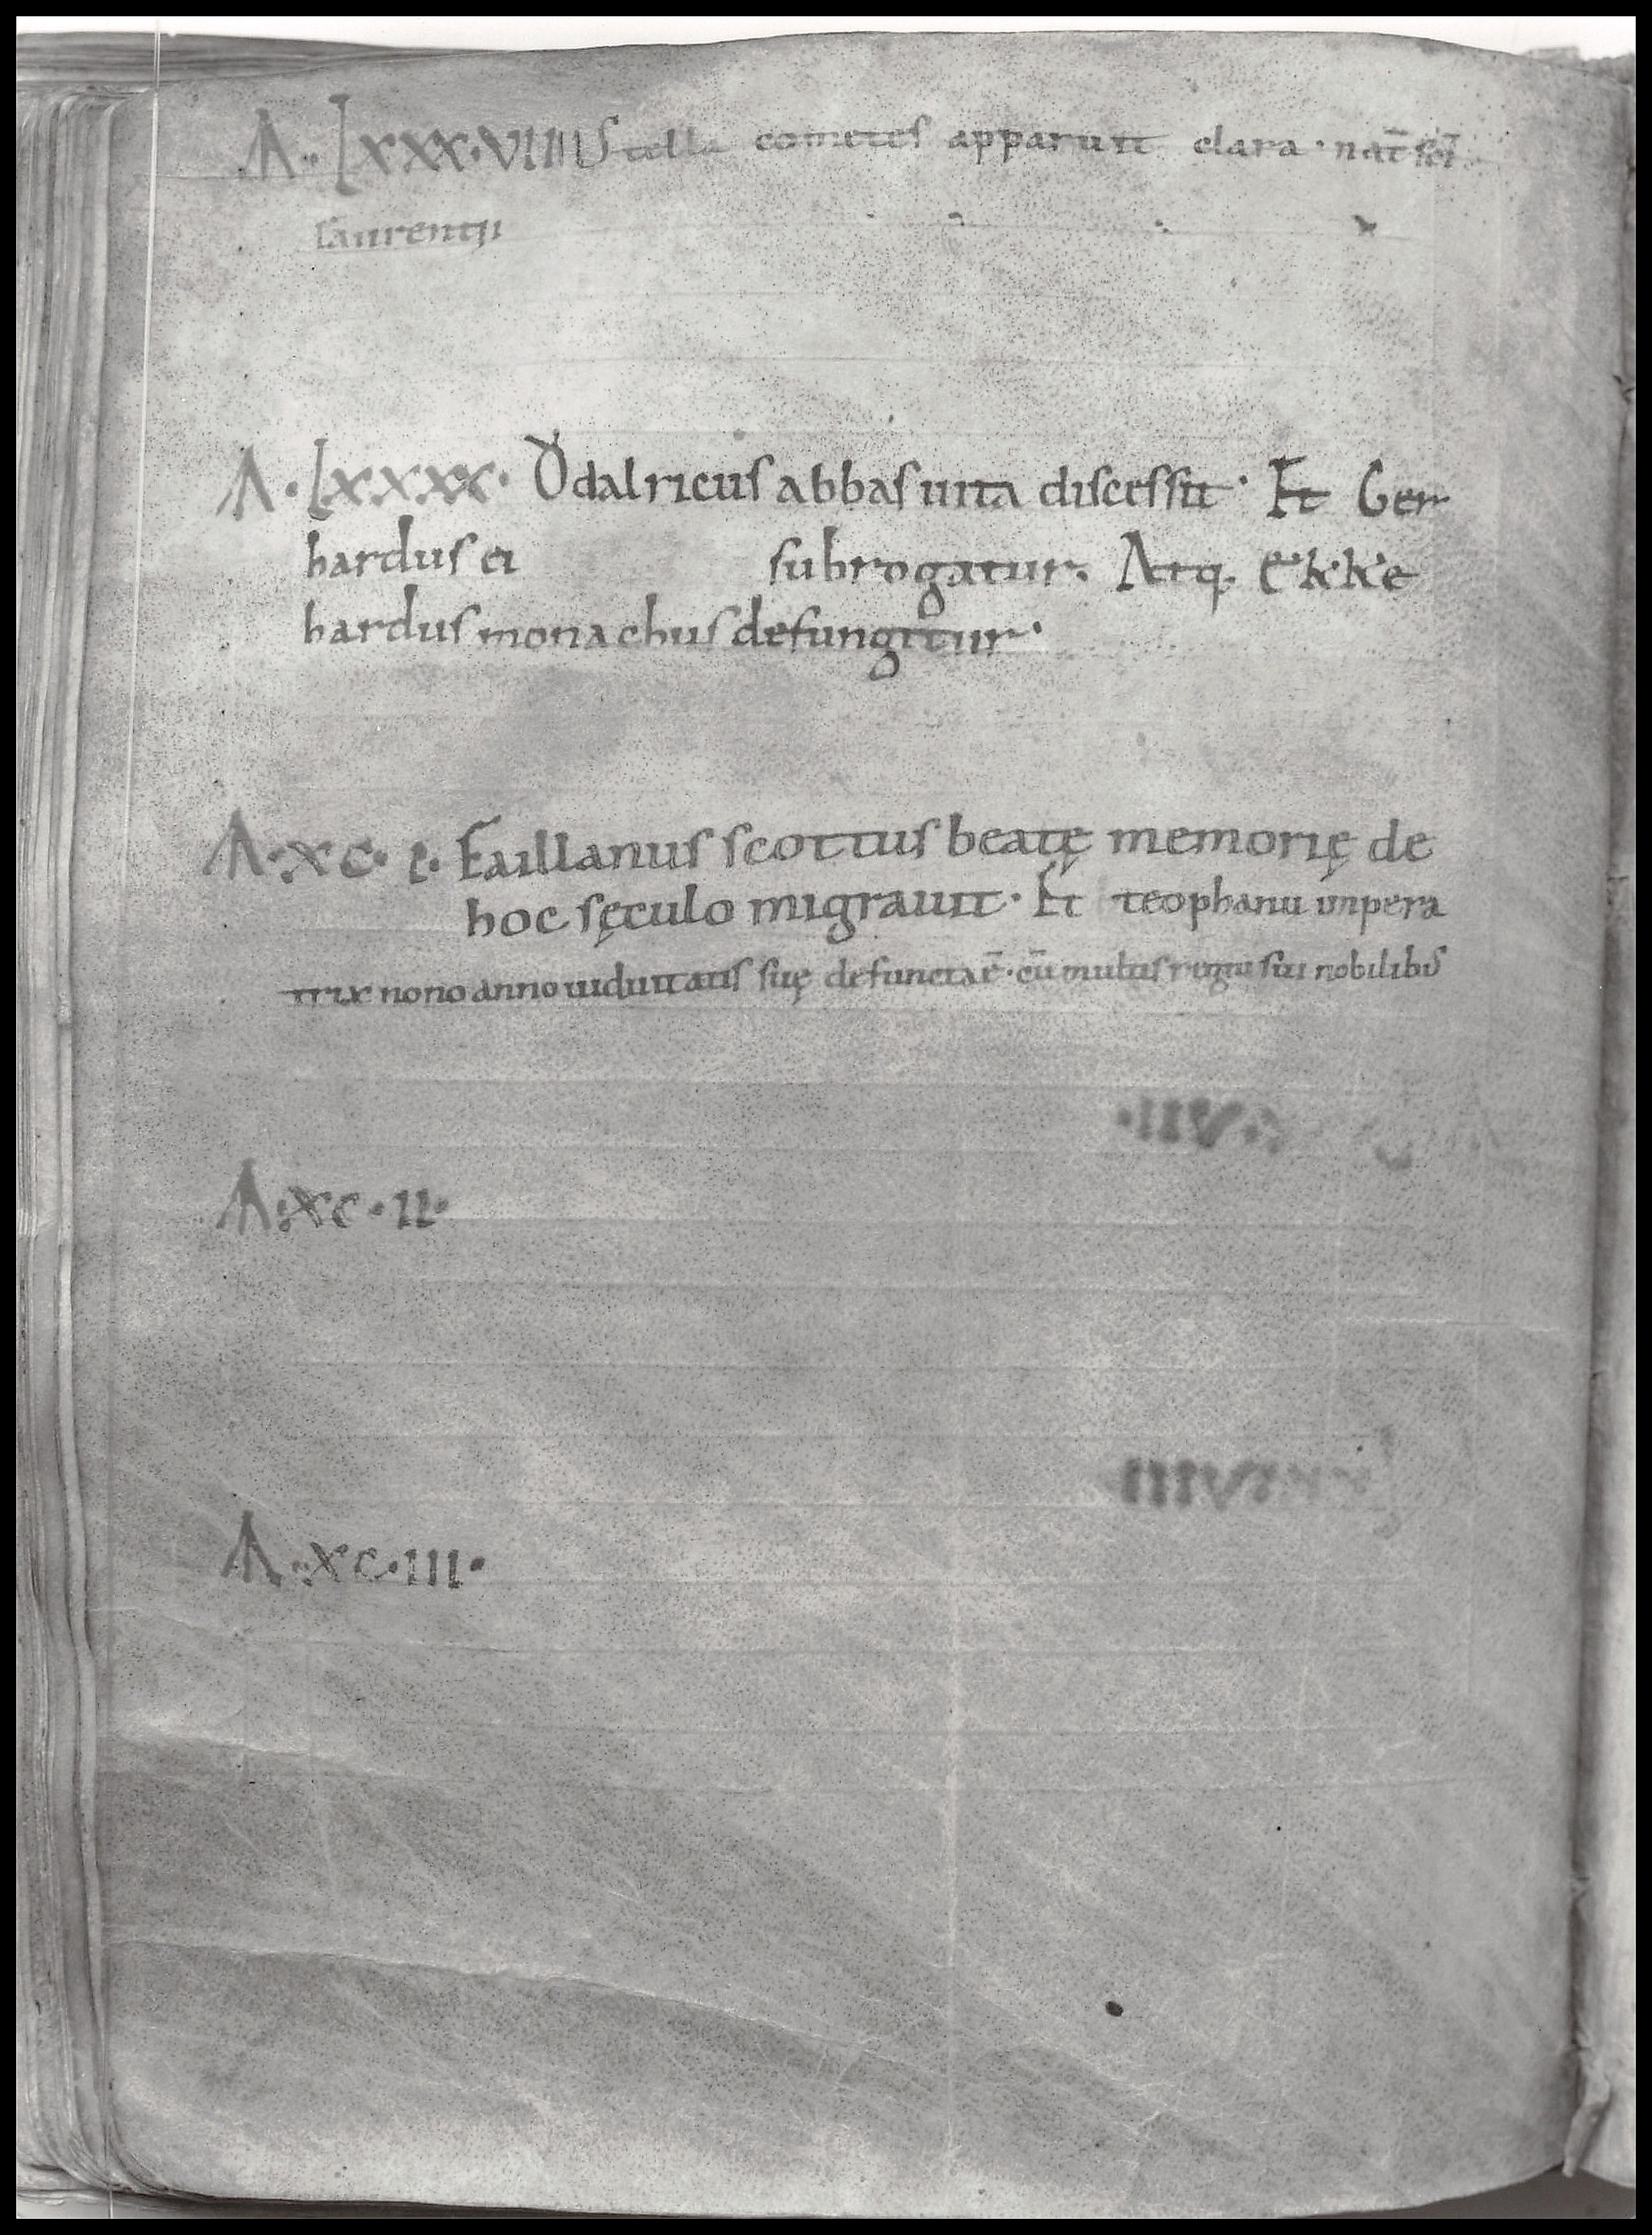 A. Lxxx·VIIII Stella cometes apparuit clara · nat̄ sc̄i
laurentii
A · Lxxxx · Ǒdalricus abbas uita discessit · Et Ger
hardus ei subrogatur. Atq. Ekke
hardus monachus defungitur ·
A · xc · I · Faillanus scottus beatę memorię de
hoc sęculo migrauit · Et teophanu inpera
trix nono anno uiduitatis suę defuncta ē · cū multis regni sui nobilibus
A · xc · II ·
A · xc · III ·